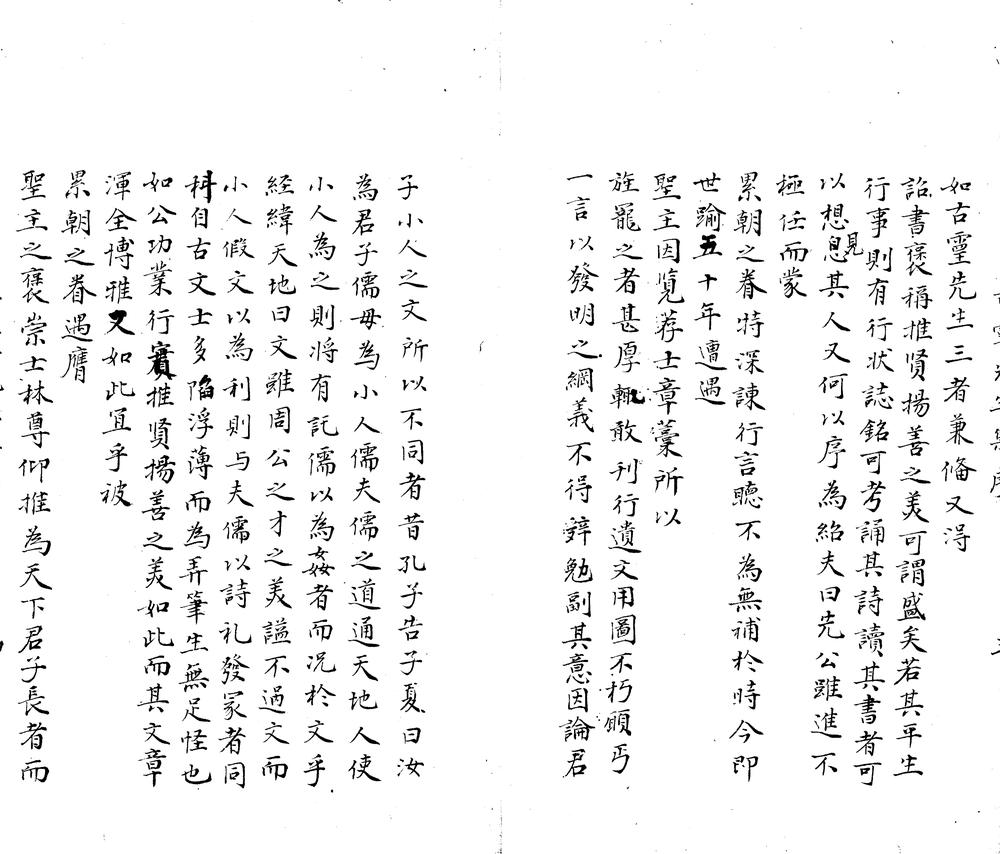 如古靈先生三者兼俻又淂
詔書褒稱推賢揚善之美可謂盛矣若其平生
行事則有行状誌銘可考誦其詩讀其書者可
以想見其人又何以序為紹夫曰先公雖進不
極任而蒙
累朝之眷特深諌行言聽不為無補於時今即
世踰五十年遭遇
聖主因覽薦士章藁所以
旌寵之者甚厚輒敢刊行遺文用圖不朽願丐
一言以發明之綱義不得辤勉副其意因論君
子小人之文所以不同者昔孔子告子夏曰汝
為君子儒毋為小人儒夫儒之道通天地人使
小人為之則將有託儒以為姦者而况於文乎
経緯天地曰文雖周公之才之美謚不過文而
小人假文以為利則与夫儒以詩礼發冢者同
科自古文士多陷浮薄而為弄筆生無足怪也
如公功業行實推賢揚善之美如此而其文章
渾全博雅又如此宜乎被
累朝之眷遇膺
聖主之褒崇士林尊仰推為天下君子長者而